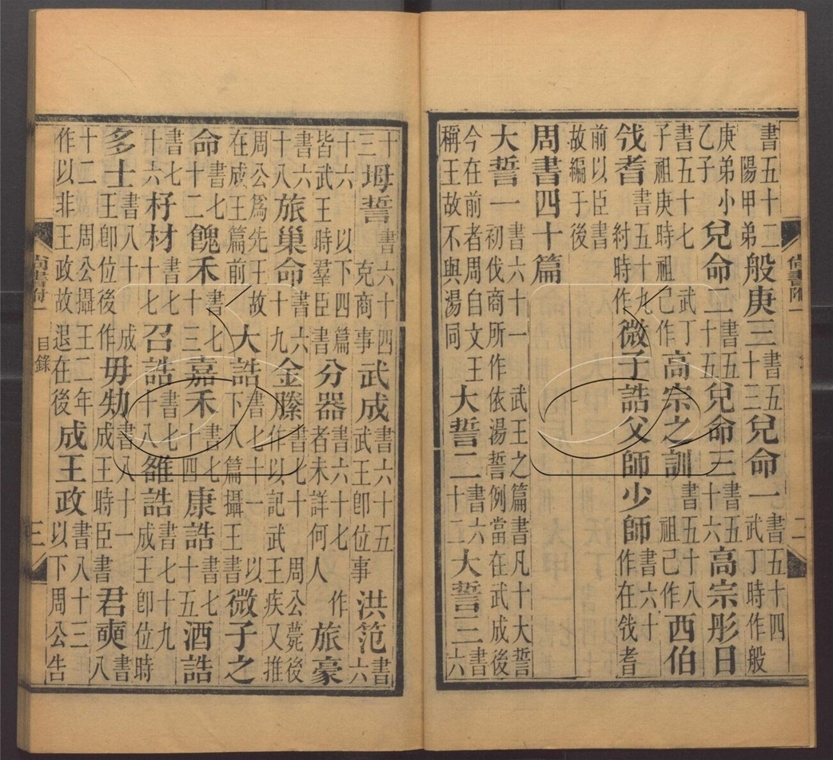 書五十二陽甲弟般庚三書五十三兌命一書五十四武丁時作般
庚弟小乙子兌命二書五十五兌命三書五十六高宗肜日
書五十七武丁子祖庚時祖己作高宗之訓書五十八祖己作西伯
戗耆書五十九紂時作微子誥父師少師書六十作在戗耆
前以臣書故編于後
周書四十篇
大誓一書六十一武王之篇書凡十大誓初伐商所作依湯誓例當在武成後
今在前者周自文王稱王故不與湯同大誓二書六十二大誓三書六
尚書附一
二
十三坶誓書六十四克商事武成書六十五武王卽位事洪范書六
十六以下四篇皆武王時羣臣書分器書六十七作者未詳何人旅豪
書六十八旅巢命書六十九金縢書七十周公薨後作以記武王疾又推
周公爲先王故在成王篇前大誥書七十一以下八篇攝王書微子之
命書七十二餽禾書七十三嘉禾書七十四康誥書七十五酒誥
書七十六杍材書七十七召誥書七十八雒誥書七十九成王卽位時
多士書八十成王卽位後作毋劮書八十一成王時臣書君奭書八
十二周公攝王二年作以非王政故退在後成王政書八十三以下周公告
尚書附一
目錄
三